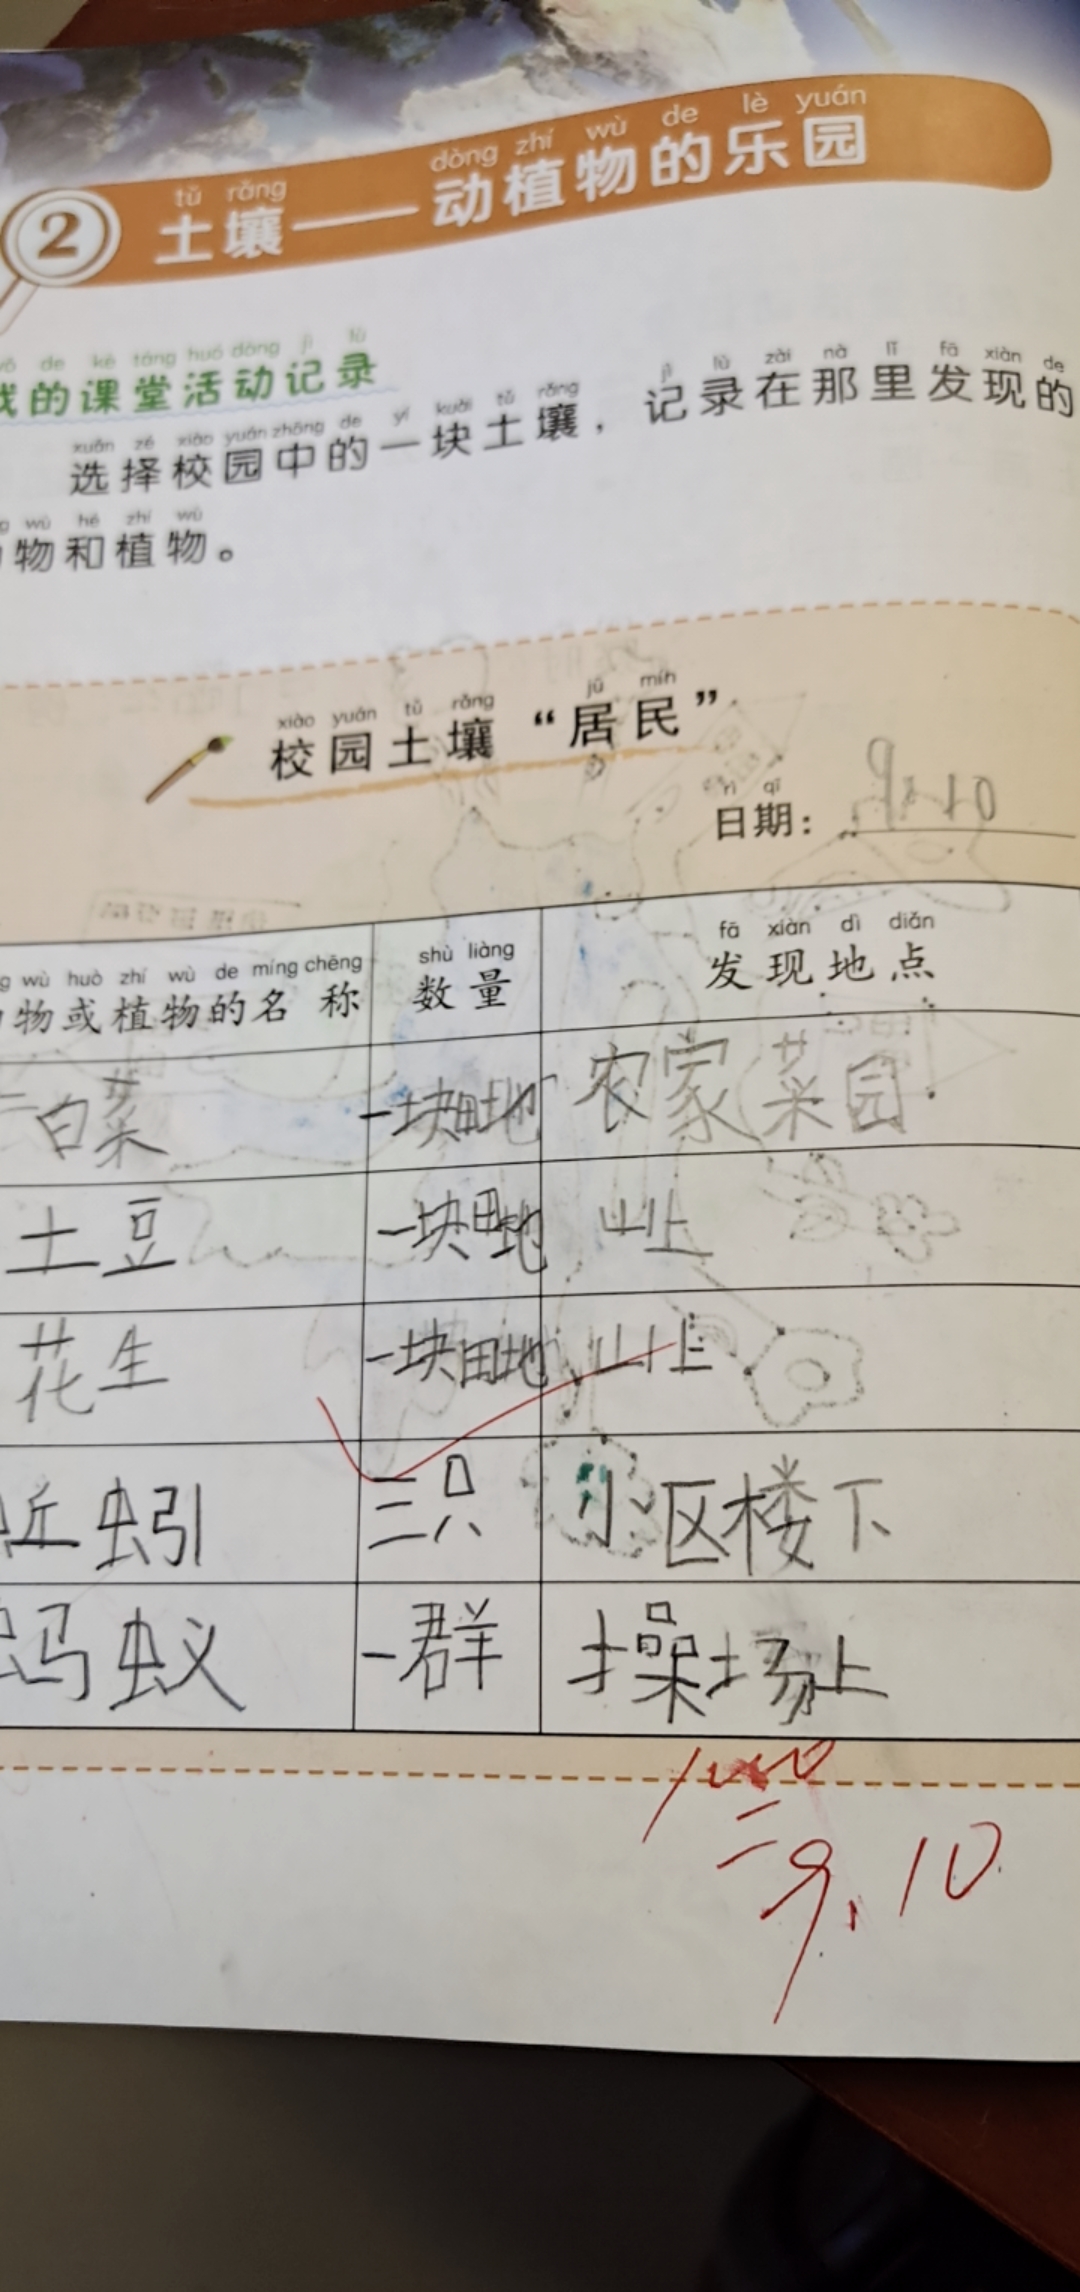 dòng zhí wù de lè yuán
tǔ rǎng
2 土壤——动植物的乐园
de kè táng huó dòng jì lù
我的课堂活动记录
xuǎn zé xiào yuán zhōng de yí kuài tǔ rǎng jì lù zài nà lǐ fā xiàn de
选择校园中的一块土壤，记录在那里发现的
wù hé zhí wù
物和植物。
xiào yuán tǔ rǎng jū mín
校园土壤“居民”
rì qī
日期：
wù huò zhí wù de míng chēng shù liàng fā xiàn dì diǎn
物或植物的名称 数量 发现地点
白菜 一块田地 农家菜园
土豆 一块田地 山上
花生 一块田地 山上
蚯蚓 三只 小区楼下
蚂蚁 一群 操场上
9.10